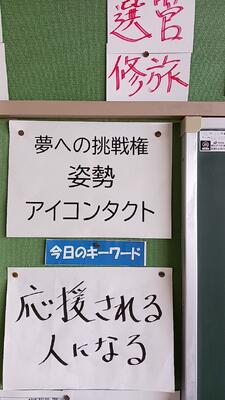 選営
修旅
夢への挑戦権
姿勢
アイコンタクト
今日のキーワード
応援される
人になる